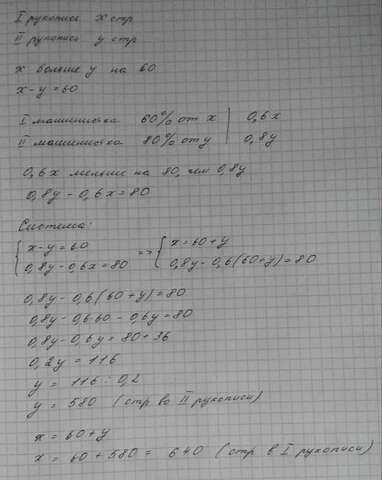 I рукопись x стр
II рукопись y стр
x больше y на 60
x - y = 60
I машинистка 60% от x | 0,6x
II машинистка 80% от y | 0,8y
0,6x меньше на 80, чем 0,8y
0,8y - 0,6x = 80
Система:
{ x - y = 60 => { x = 60 + y
{ 0,8y - 0,6x = 80 { 0,8y - 0,6(60+y) = 80
0,8y - 0,6(60+y) = 80
0,8y - 0,6·60 - 0,6y = 80
0,8y - 0,6y = 80 + 36
0,2y = 116
y = 116 : 0,2
y = 580 (стр во II рукописи)
x = 60 + y
x = 60 + 580 = 640 (стр в I рукописи)